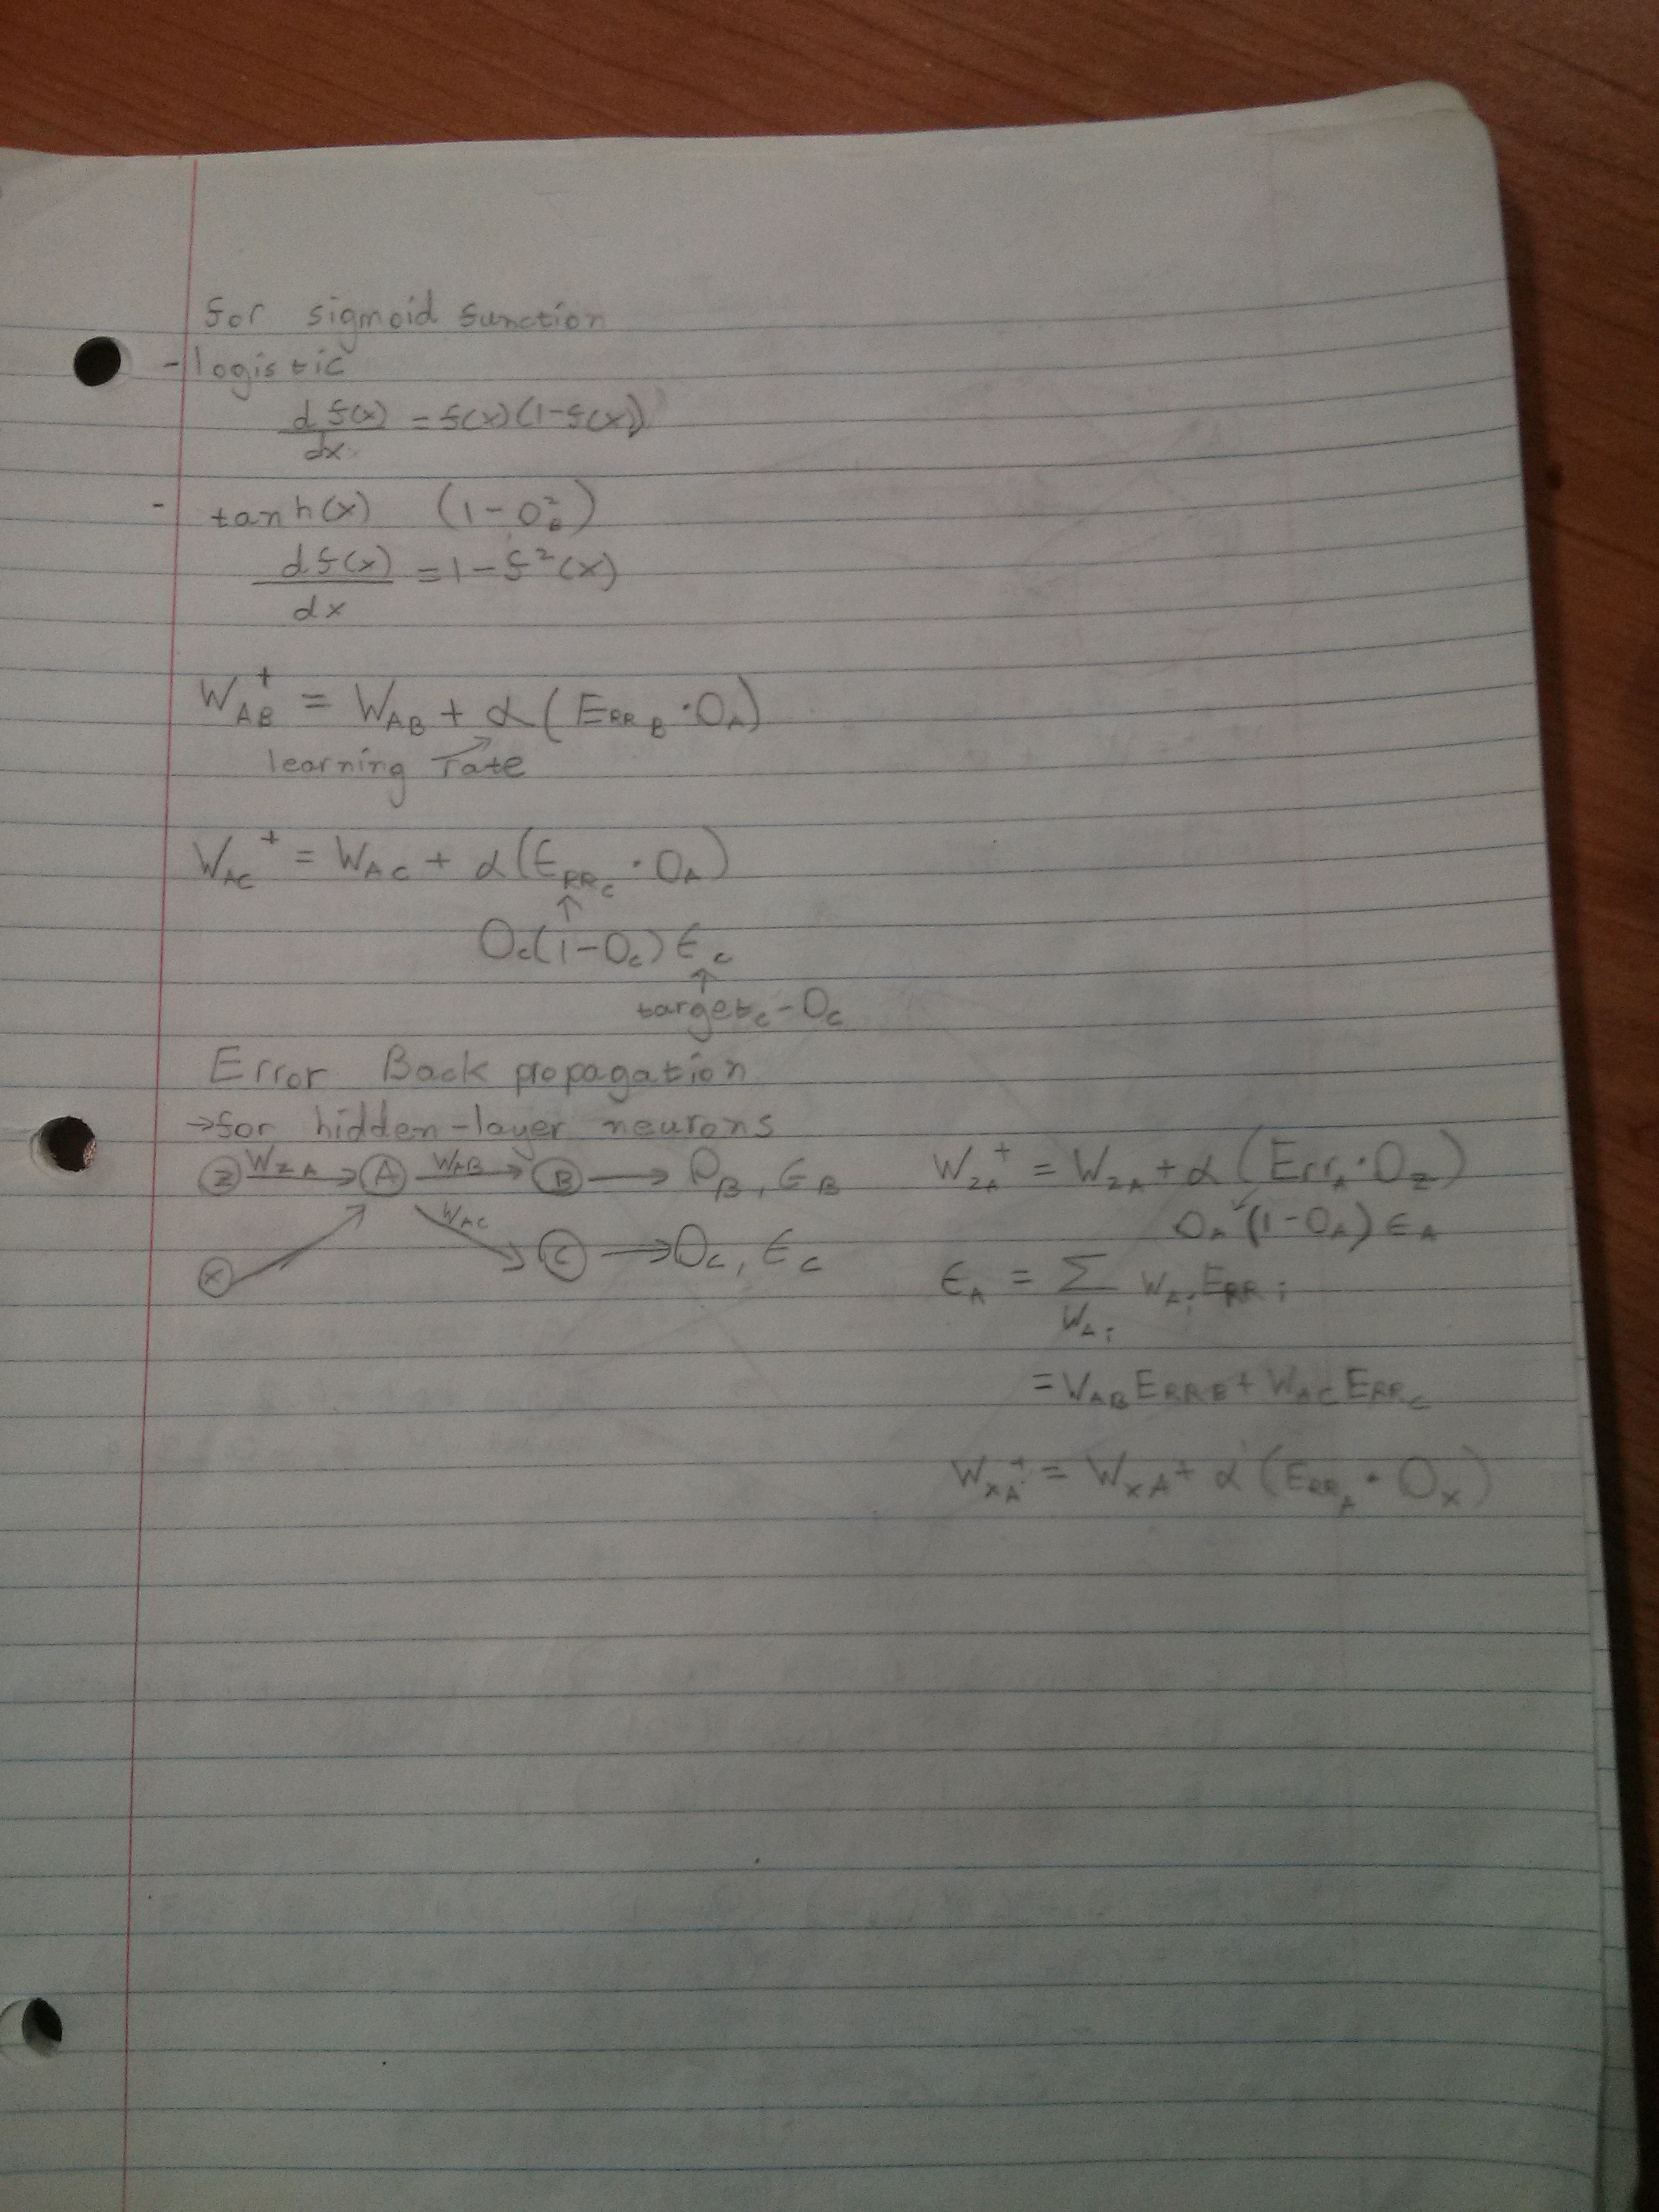 for sigmoid function
- logistic
d f(x) / dx = f(x)(1-f(x))
- tanh(x) (1 - O_B²)
d f(x) / dx = 1 - f²(x)
W_AB⁺ = W_AB + α(E_RR_B · O_A)
learning rate
W_AC⁺ = W_AC + α(E_RR_C · O_A)
↑
O_C(1-O_C) ϵ_C
↑
target_C - O_C
Error Back propagation
→ for hidden-layer neurons
Z W_ZA → A W_AB → B → O_B, ϵ_B
W_AC
X C → O_C, ϵ_C
W_ZA⁺ = W_ZA + α (Err_A · O_Z)
O_A (1-O_A) ϵ_A
ϵ_A = Σ W_Ai E_RR i
W_Ai
= W_AB E_RR B + W_AC E_RR C
W_XA⁺ = W_XA + α (E_RR_A · O_X)